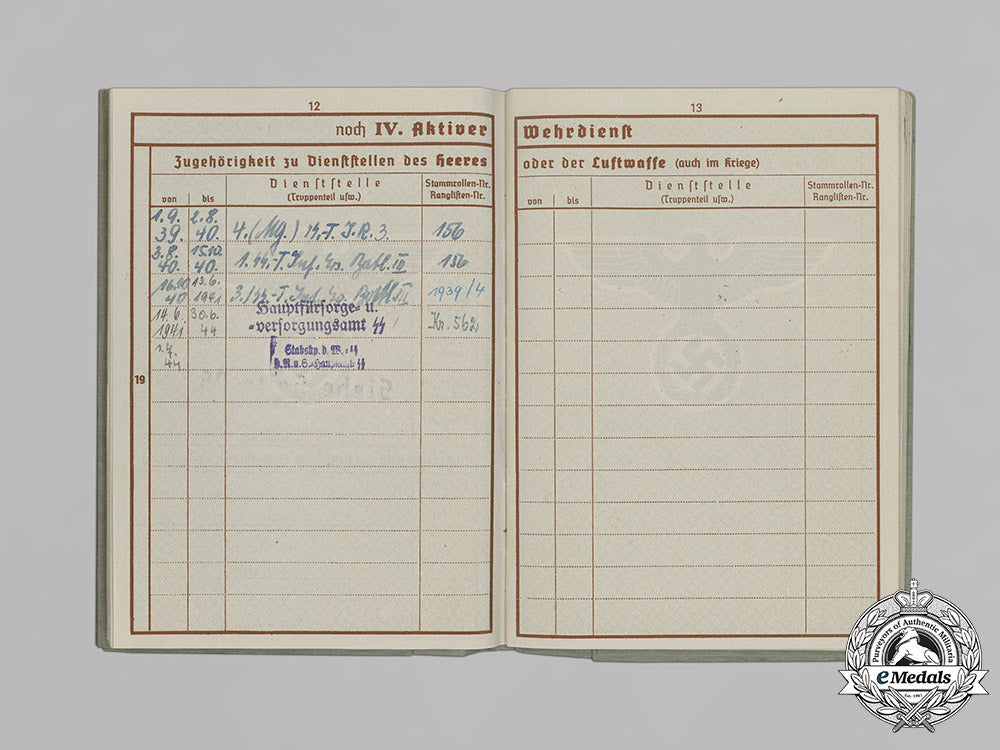 12
noch IV. Aktiver
Zugehörigkeit zu Dienststellen des Heeres
von bis
Dienststelle
(Truppenteil usw.)
Stammrollen-Nr.
Ranglisten-Nr.
1.9. 2.8.
39. 40. 4.(Mg.) J.R.3. 156
3.8. 15.12.
40. 40. 1. Inf. Ers. Batl. IV 156
16.
40 1941 3./ Inf. 1939/4
Hauptfürsorge- u.
14.6. 30.6.
-versorgungsamt
1941 44 Kr. 562
1.7.
44
Stabskp. d. W.-
19
13
Wehrdienst
oder der Luftwaffe (auch im Kriege)
von bis
Dienststelle
(Truppenteil usw.)
Stammrollen-Nr.
Ranglisten-Nr.
Purveyors of Authentic Militaria
eMedals